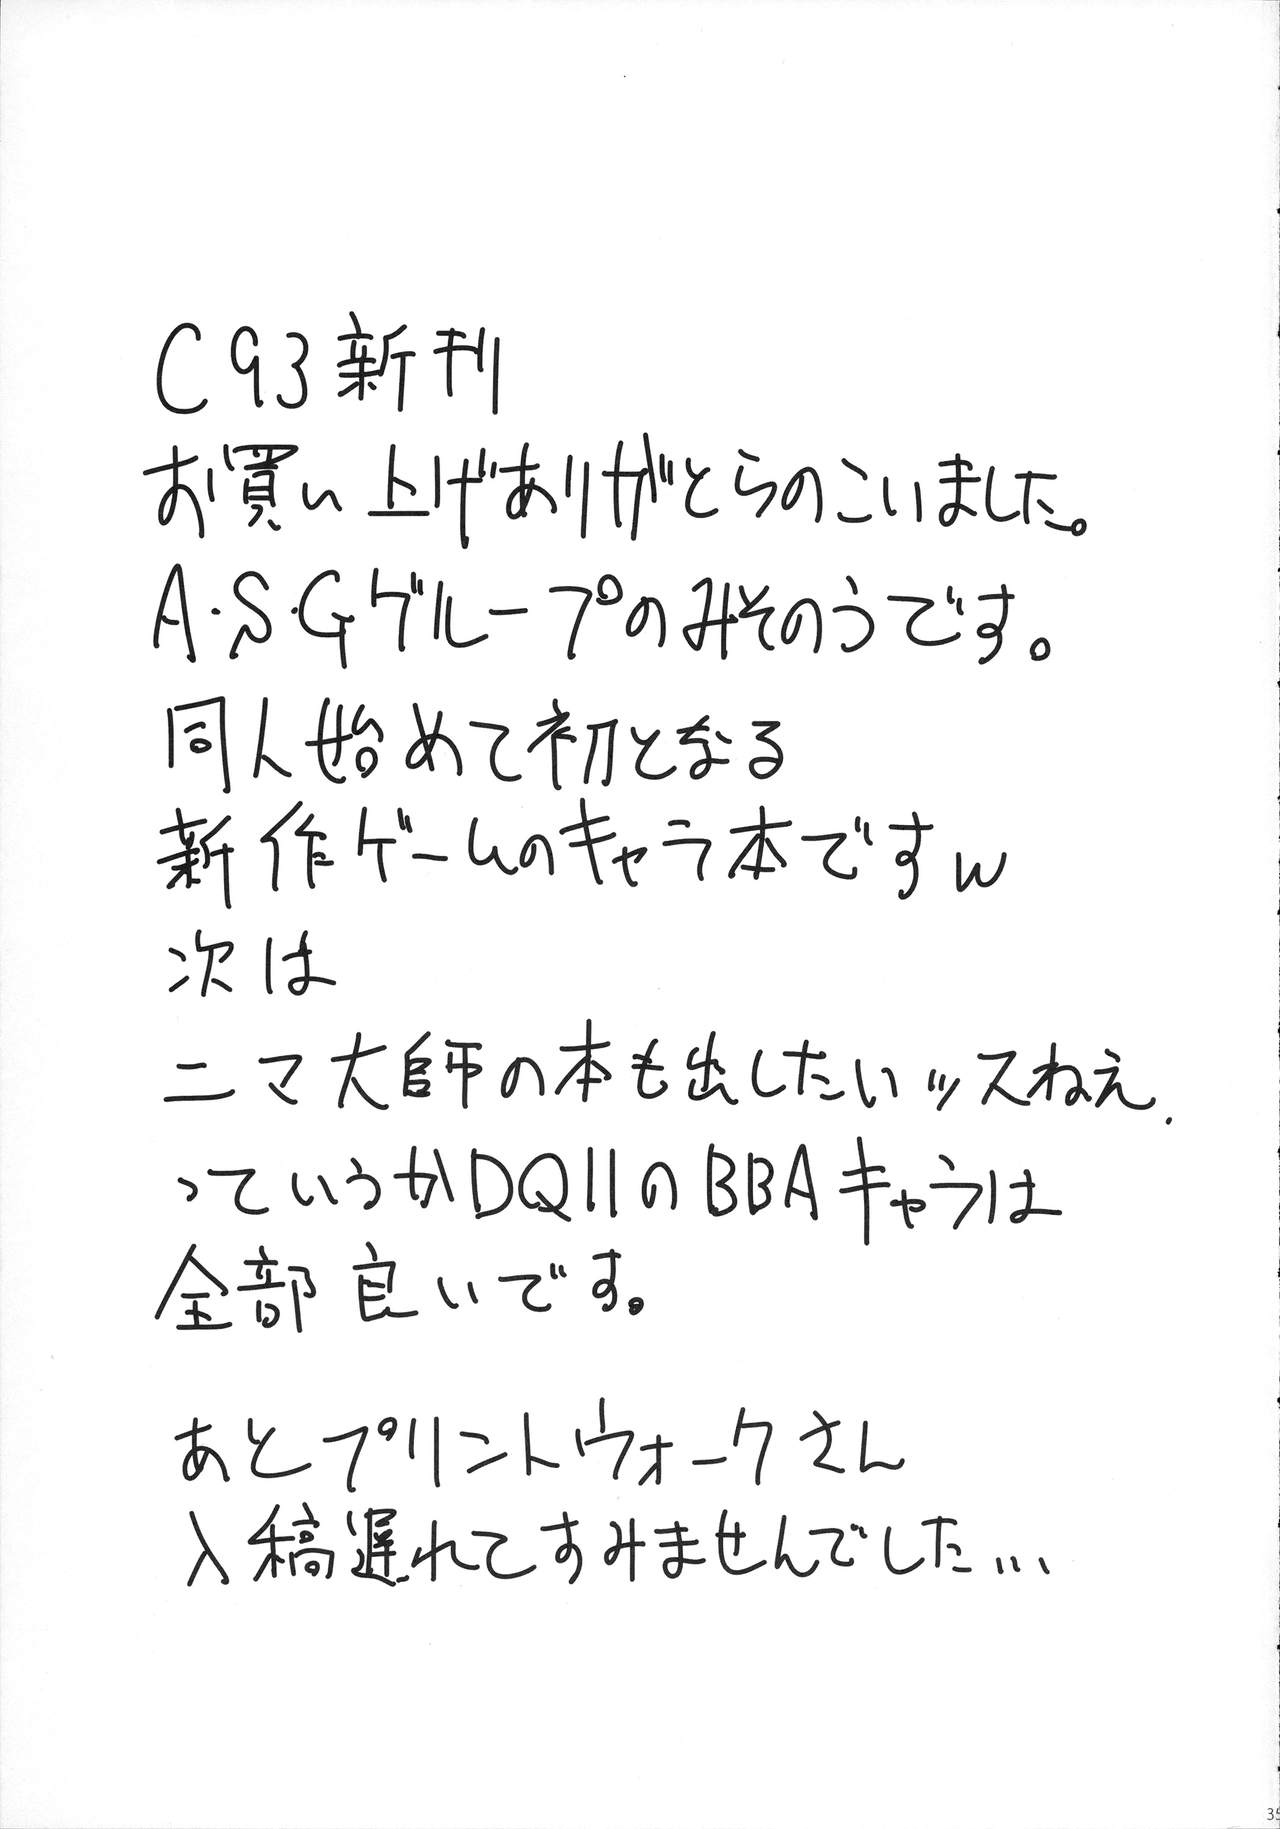 C93新刊
お買い上げありがとらのこいました。
A・S・Gグループのみそのうです。
同人始めて初となる
新作ゲームのキャラ本ですw
次は
ニマ大師の本も出したいッスねえ.
っていうかDQ11のBBAキャラは
全部良いです。
あとプリントウォークさん
入稿遅れてすみませんでした...
35